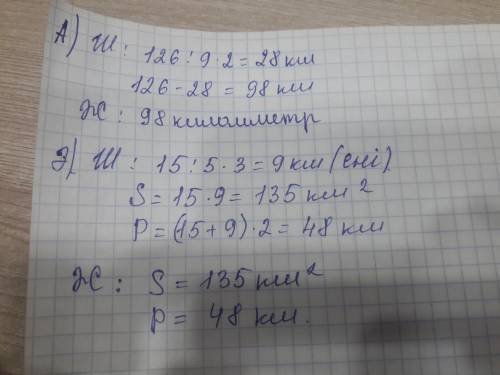 А) Ш: 126:9·2=28км
126-28=98км
Ж: 98километр
Э) Ш: 15:5·3=9км(ені)
S=15·9=135км²
P=(15+9)·2=48км
Ж: S=135км²
P=48км.